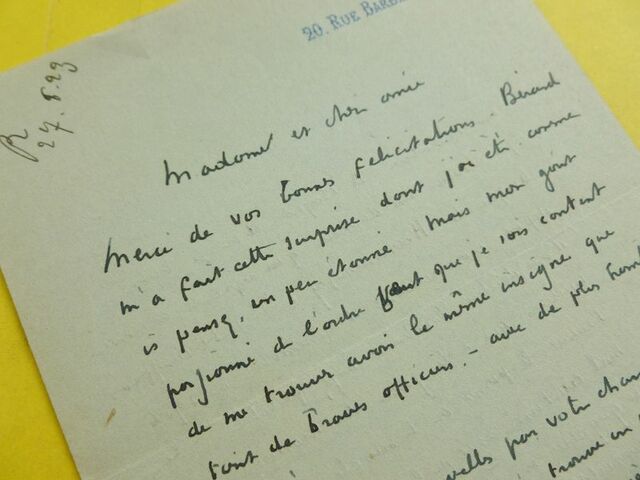 20. RUE BARB
R 27.8.23
Madame et cher amie
Merci de vos bonnes felicitations. Bérard
m'a fait cette surprise dont j'ai été comme
vs pensez, un peu étonné. Mais mon goût
passionné de l'ordre veut que je sois content
de me trouver avoir le même insigne que
tant de braves officiers. - avec de plus
velles par votre
trouve